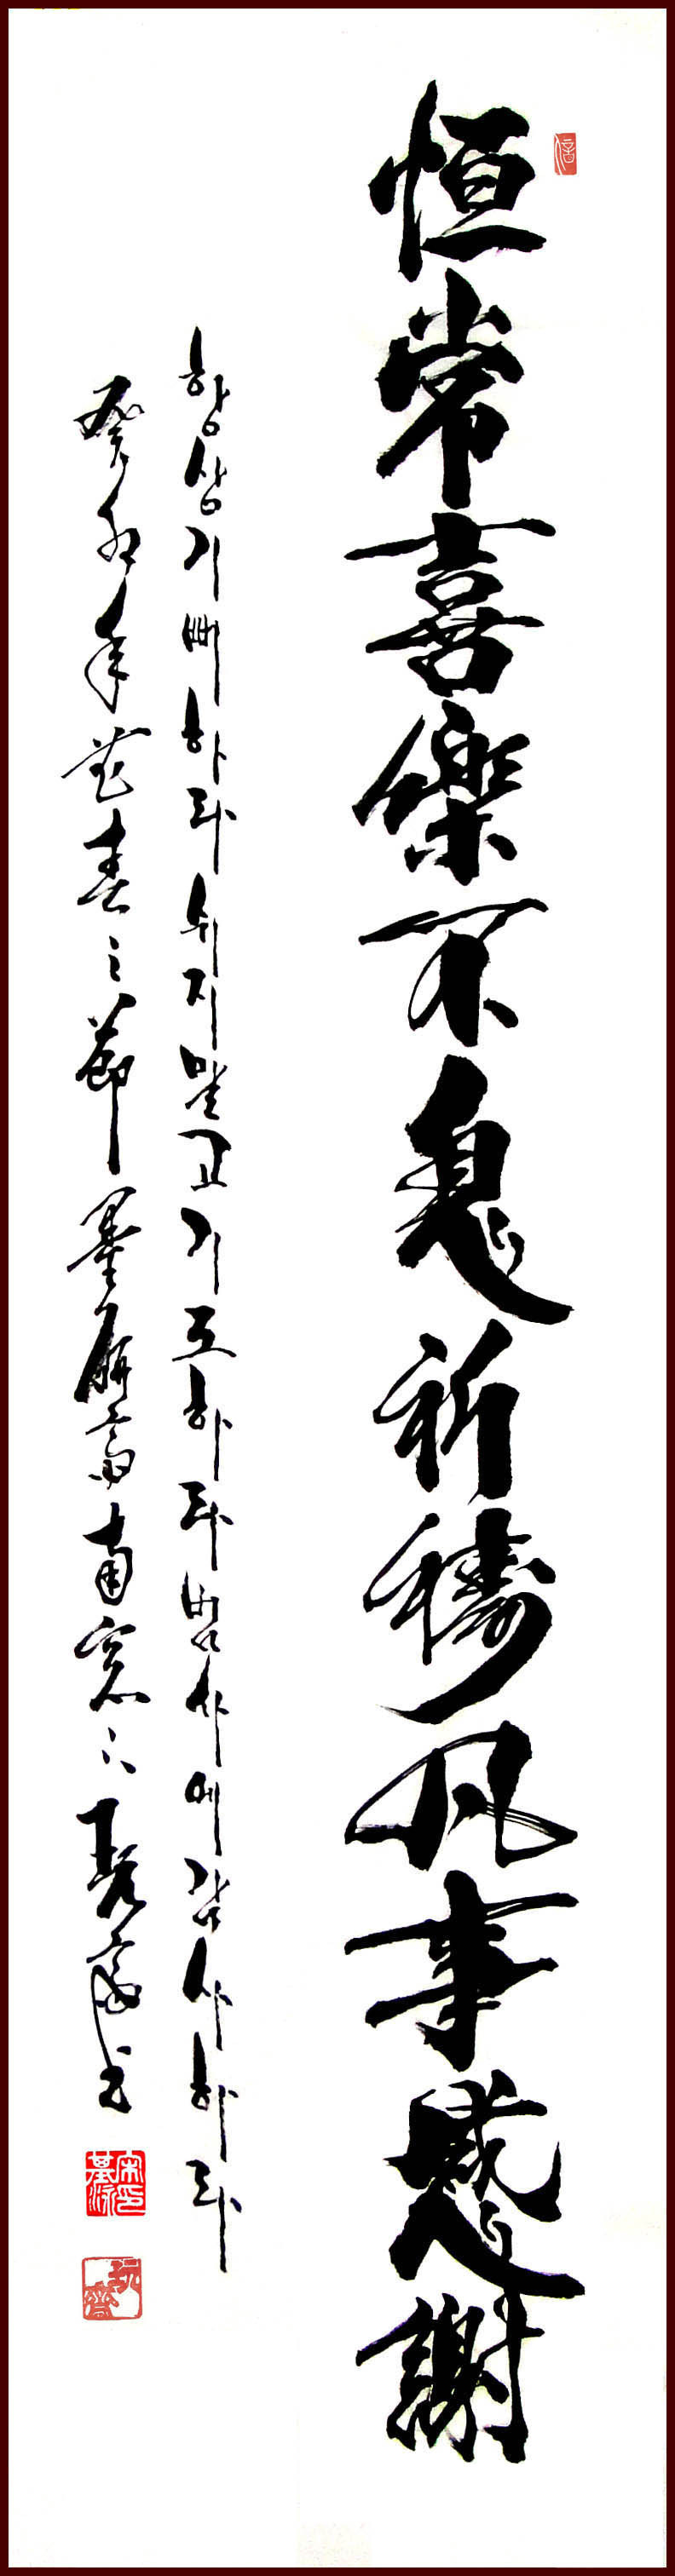 恒常喜樂不息祈禱凡事感謝
항상기뻐하라쉬지말고기도하라범사에감사하라
年 春之節墨 齋南窓下 齋书